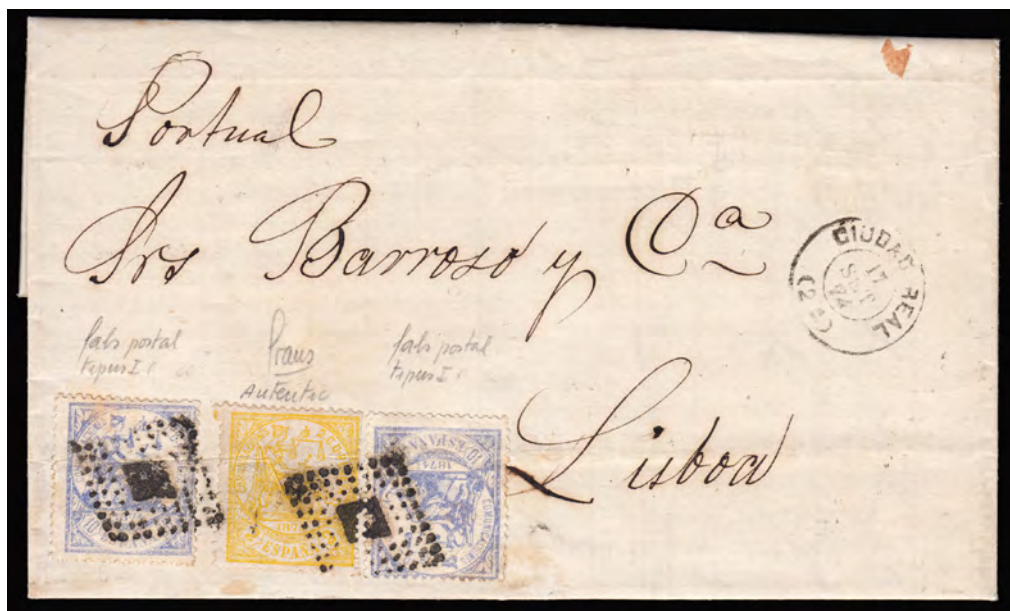 Portual
Srs Barroso y Cª
CIUDAD REAL
17
SET
74
(2ª)
fals postal
tipus I
Autentic
fals postal
tipus I
Lisboa
1874
ESPAÑA